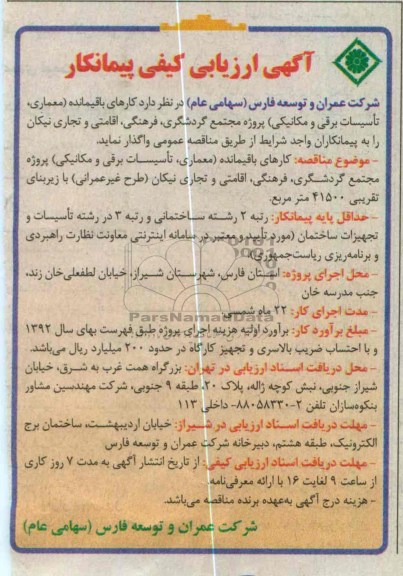 آگهی ارزیابی کیفی پیمانکار
شرکت عمران و توسعه فارس (سهامی عام) در نظر دارد کارهای باقیمانده (معماری،
تأسیسات برقی و مکانیکی) پروژه مجتمع گردشگری، فرهنگی، اقامتی و تجاری نیکان
را به پیمانکاران واجد شرایط از طریق مناقصه عمومی واگذار نماید.
- موضوع مناقصه: کارهای باقیمانده (معماری، تأسیسات برقی و مکانیکی) پروژه
مجتمع گردشگری، فرهنگی، اقامتی و تجاری نیکان (طرح غیرعمرانی) با زیربنای
تقریبی ۴۱۵۰۰ متر مربع.
- حداقل پایه پیمانکار: رتبه ۲ رشته ساختمانی و رتبه ۳ در رشته تأسیسات و
تجهیزات ساختمان (مورد تأیید و معتبر در سامانه اینترنتی معاونت نظارت راهبردی
و برنامه‌ریزی ریاست‌جمهوری)
- محل اجرای پروژه: استان فارس، شهرستان شیراز، خیابان لطفعلی‌خان زند،
جنب مدرسه خان
- مدت اجرای کار: ۲۲ ماه شمسی
ParsNamadData
- مبلغ برآورد کار: برآورد اولیه هزینه اجرای پروژه طبق فهرست بهای سال ۱۳۹۲
و با احتساب ضریب بالاسری و تجهیز کارگاه در حدود ۲۰۰ میلیارد ریال می‌باشد.
- محل دریافت اسناد ارزیابی در تهران: بزرگراه همت غرب به شرق، خیابان
شیراز جنوبی، نبش کوچه ژاله، پلاک ۲۰، طبقه ۹ جنوبی، شرکت مهندسین مشاور
بنکوه‌سازان تلفن ۲-۸۸۰۵۸۳۳۰- داخلی ۱۱۳
- مهلت دریافت اسناد ارزیابی در شیراز: خیابان اردیبهشت، ساختمان برج
الکترونیک، طبقه هشتم، دبیرخانه شرکت عمران و توسعه فارس
- مهلت دریافت اسناد ارزیابی کیفی: از تاریخ انتشار آگهی به مدت ۷ روز کاری
از ساعت ۹ لغایت ۱۶ با ارائه معرفی‌نامه.
- هزینه درج آگهی به‌عهده برنده مناقصه می‌باشد.
شرکت عمران و توسعه فارس (سهامی عام)